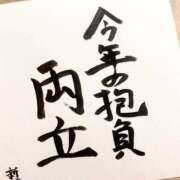 今年の抱負
両立